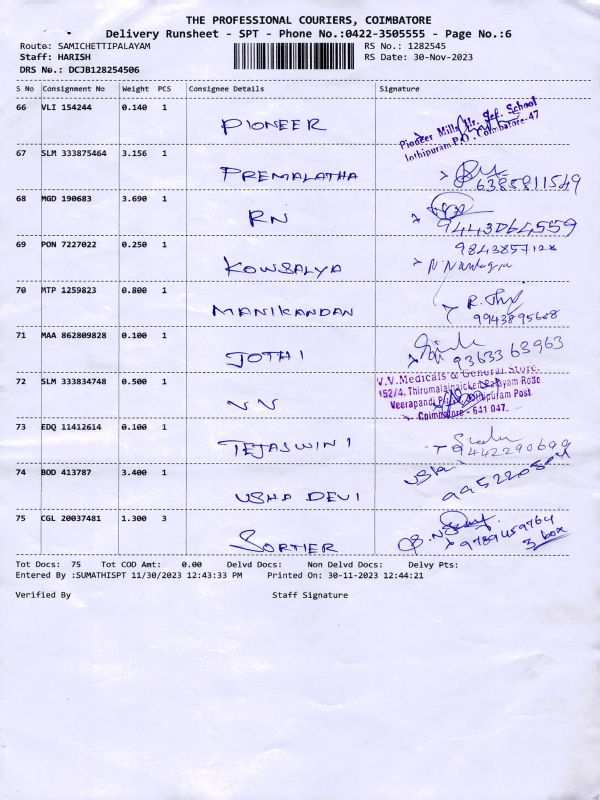 THE PROFESSIONAL COURIERS, COIMBATORE
Delivery Runsheet - SPT - Phone No.:0422-3505555 - Page No.:6
Route: SAMICHETTIPALAYAM RS No.: 1282545
Staff: HARISH RS Date: 30-Nov-2023
DRS No.: DCJB128254506
S No Consignment No Weight PCS Consignee Details Signature
66 VLI 154244 0.140 1
PIONEER
Pioneer Mills Hr. Sec. School
Jothipuram P.O, Coimbatore-47
67 SLM 333875464 3.156 1
PREMALATHA
6385811549
68 MGD 190683 3.690 1
RN
9443064559
69 PON 7227022 0.250 1
9843857128
KOWSALYA
70 MTP 1259823 0.800 1
MANIKANDAN
9943895688
71 MAA 862809828 0.100 1
JOTHI
9363363963
72 SLM 333834748 0.500 1
VV
V.V.Medicals & General Store,
152/4, Thirumalainaicken Palayam Rode
Veerapandi Jothipuram Post
Coimbatore - 641 047.
73 EDQ 11412614 0.100 1
TEJASWINI
9442290699
74 BOD 413787 3.400 1
USHA DEVI
usha
75 CGL 20037481 1.300 3
SORTIER
9789459764
3 box
Tot Docs: 75 Tot COD Amt: 0.00 Delvd Docs: Non Delvd Docs: Delvy Pts:
Entered By :SUMATHISPT 11/30/2023 12:43:33 PM Printed On: 30-11-2023 12:44:21
Verified By Staff Signature